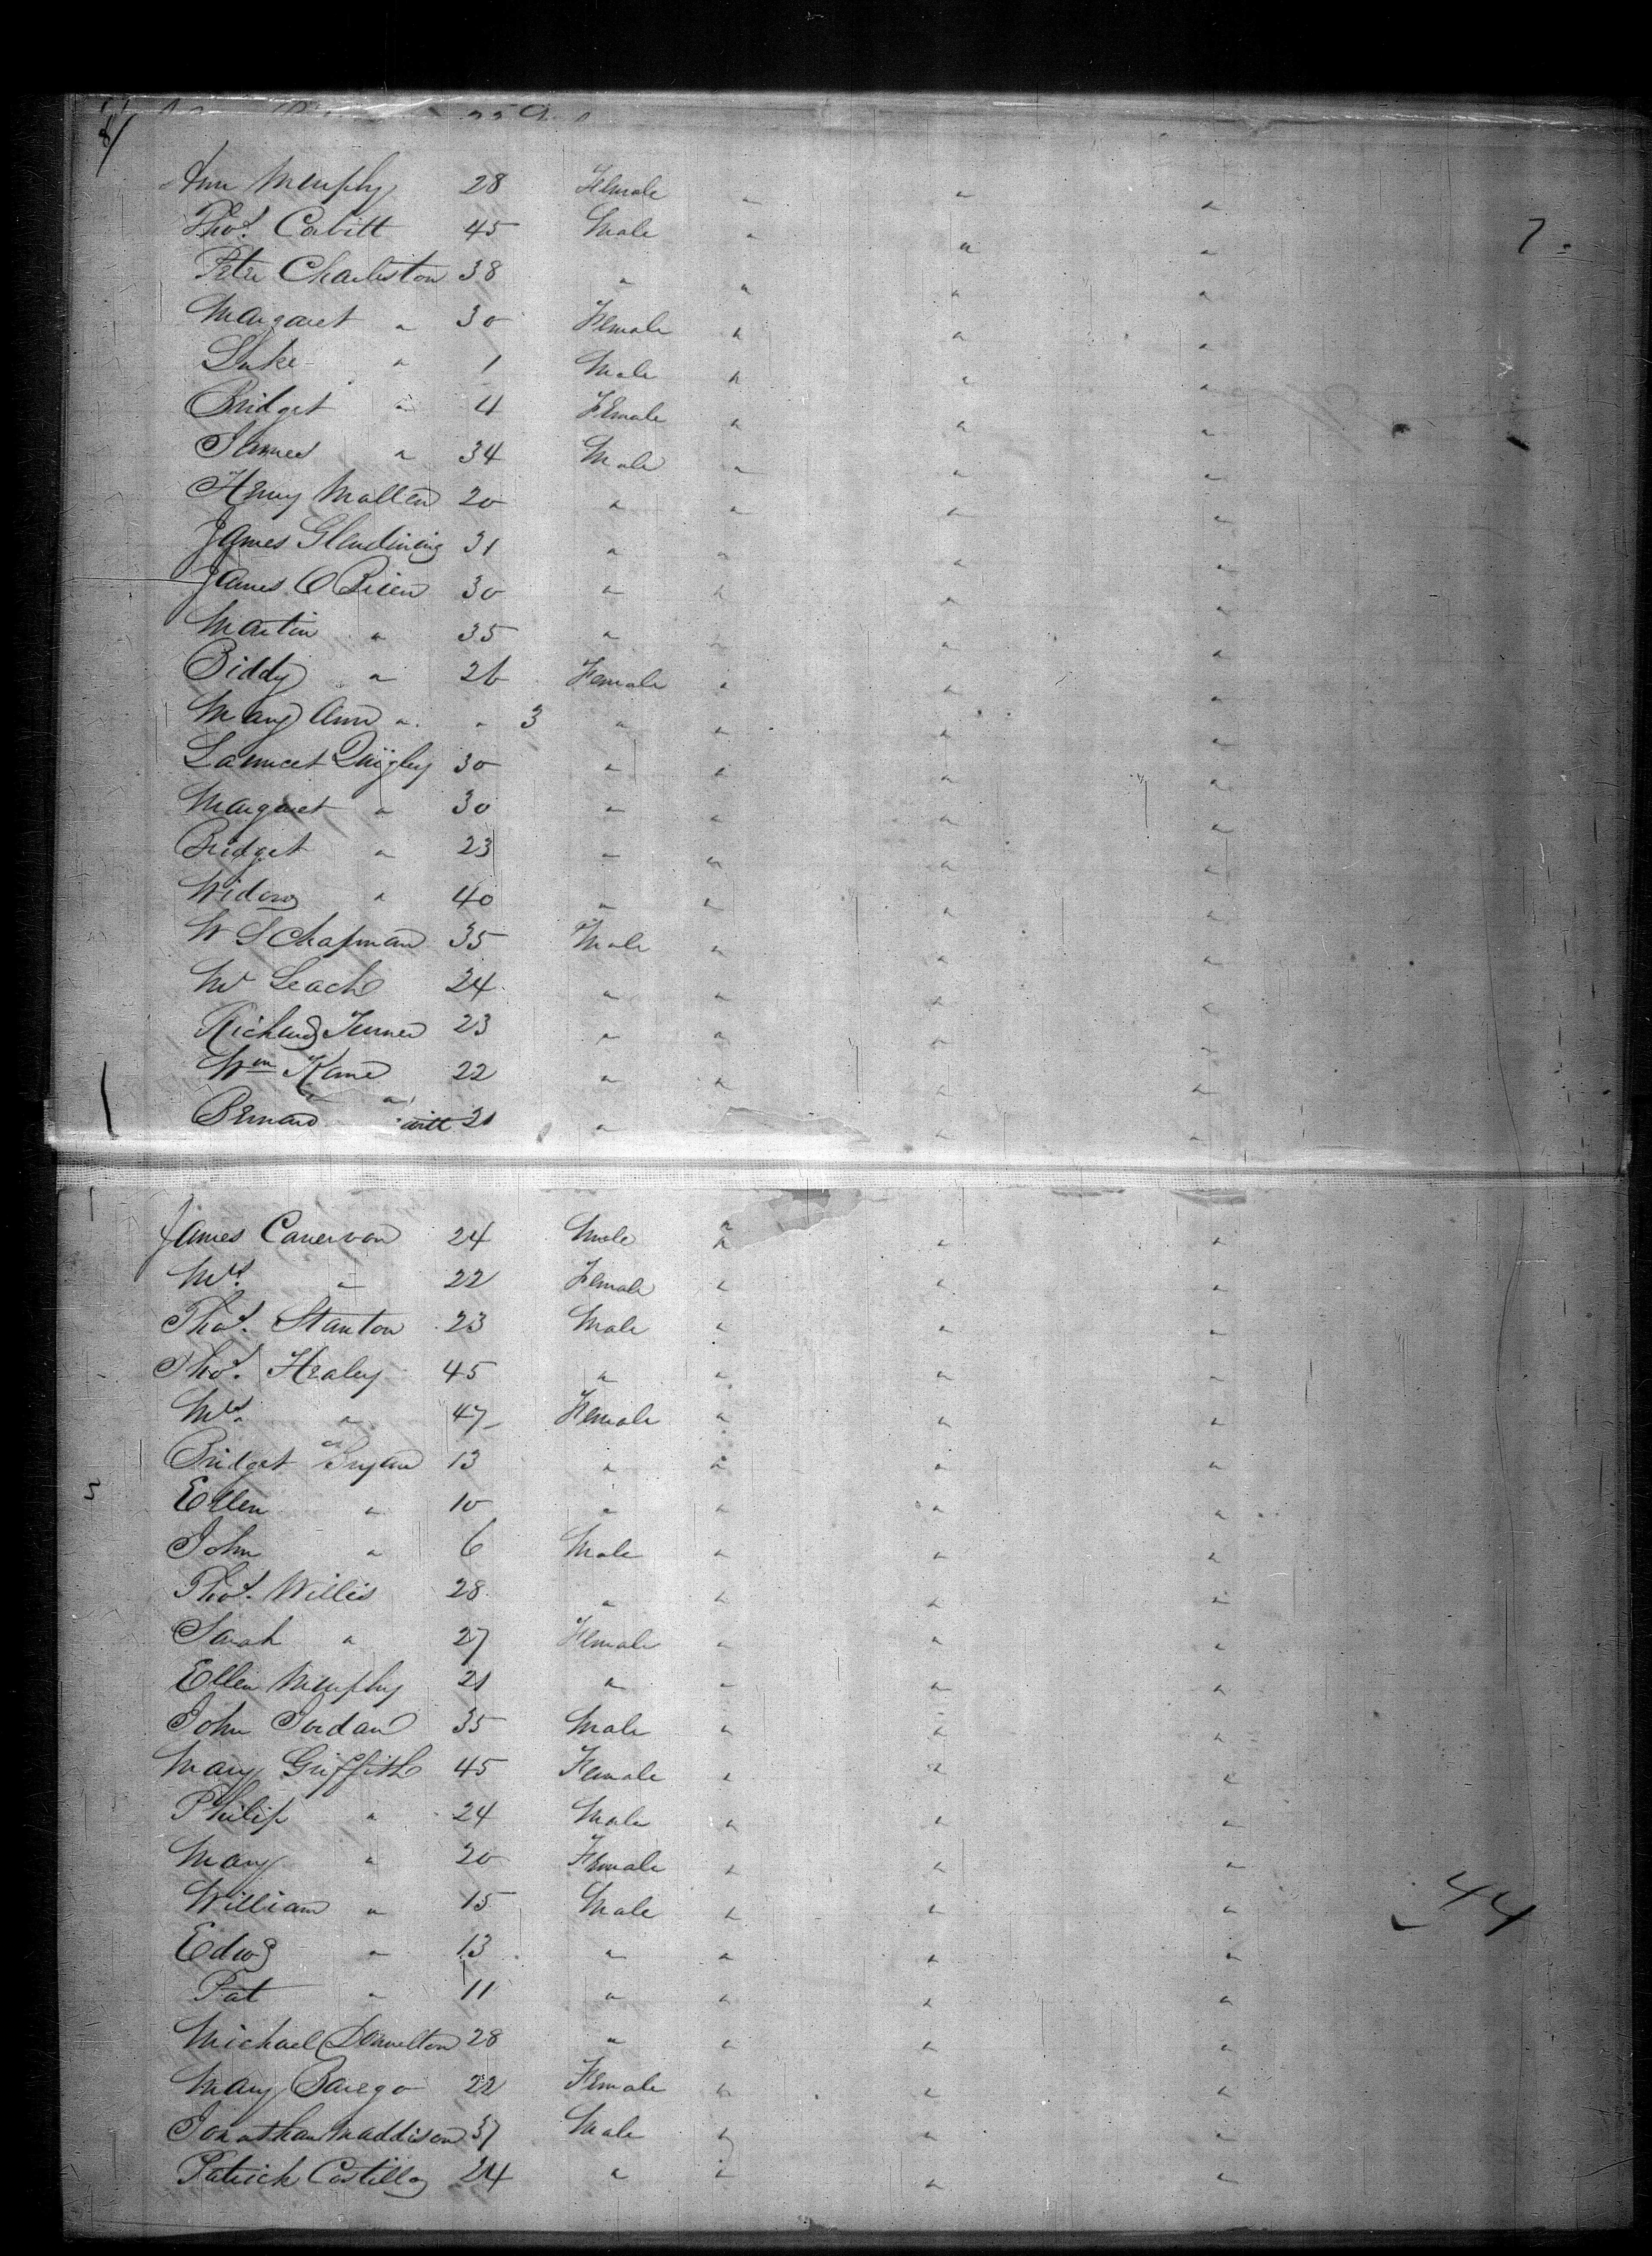 Ann Murphy 28 Female " " "
Thos. Corbitt 45 Male " " " 7
Peter Charleston 38 " " " "
Margaret " 30 Female " " "
Luke " 1 Male " " "
Bridget " 4 Female " " "
James " 34 Male " " "
Henry Mallen 20 " " " "
James Glendining 31 " " " "
James O Brien 30 " " " "
Martin " 35 " " " "
Biddy " 26 Female " " "
Mary Ann " " 3 " " " "
Quigley 30 " " " "
Margaret " 30 " " " "
Bridget " 23 " " " "
Widow " 40 " " " "
W S Chapman 35 Male " " "
Mr Leach 24 " " " "
Richard Turner 23 " " " "
Wm Kane 22 " " " "
Bernard 21 " " "
James Canervan 24 Male " " "
Mrs. " 22 Female " " "
Thos. Stanton 23 Male " " "
Thos. Healey 45 " " " "
Mrs. " 47 Female " " "
Bridget 13 " " " "
Ellen " 10 " " " "
John " 6 Male " " "
Thos. Willis 28 " " " "
Sarah " 27 Female " " "
Ellen Murphy 21 " " " "
John Jordan 35 Male " " "
Mary Griffith 45 Female " " "
Philip " 24 Male " " "
Mary " 20 Female " " "
William " 15 Male " " " 44
Edwd " 13 " " " "
Pat " 11 " " " "
Michael Donnelton 28 " " " "
Mary Barego 22 Female " " "
Jonathan Maddison 37 Male " " "
Patrick Costillo 24 " " " "